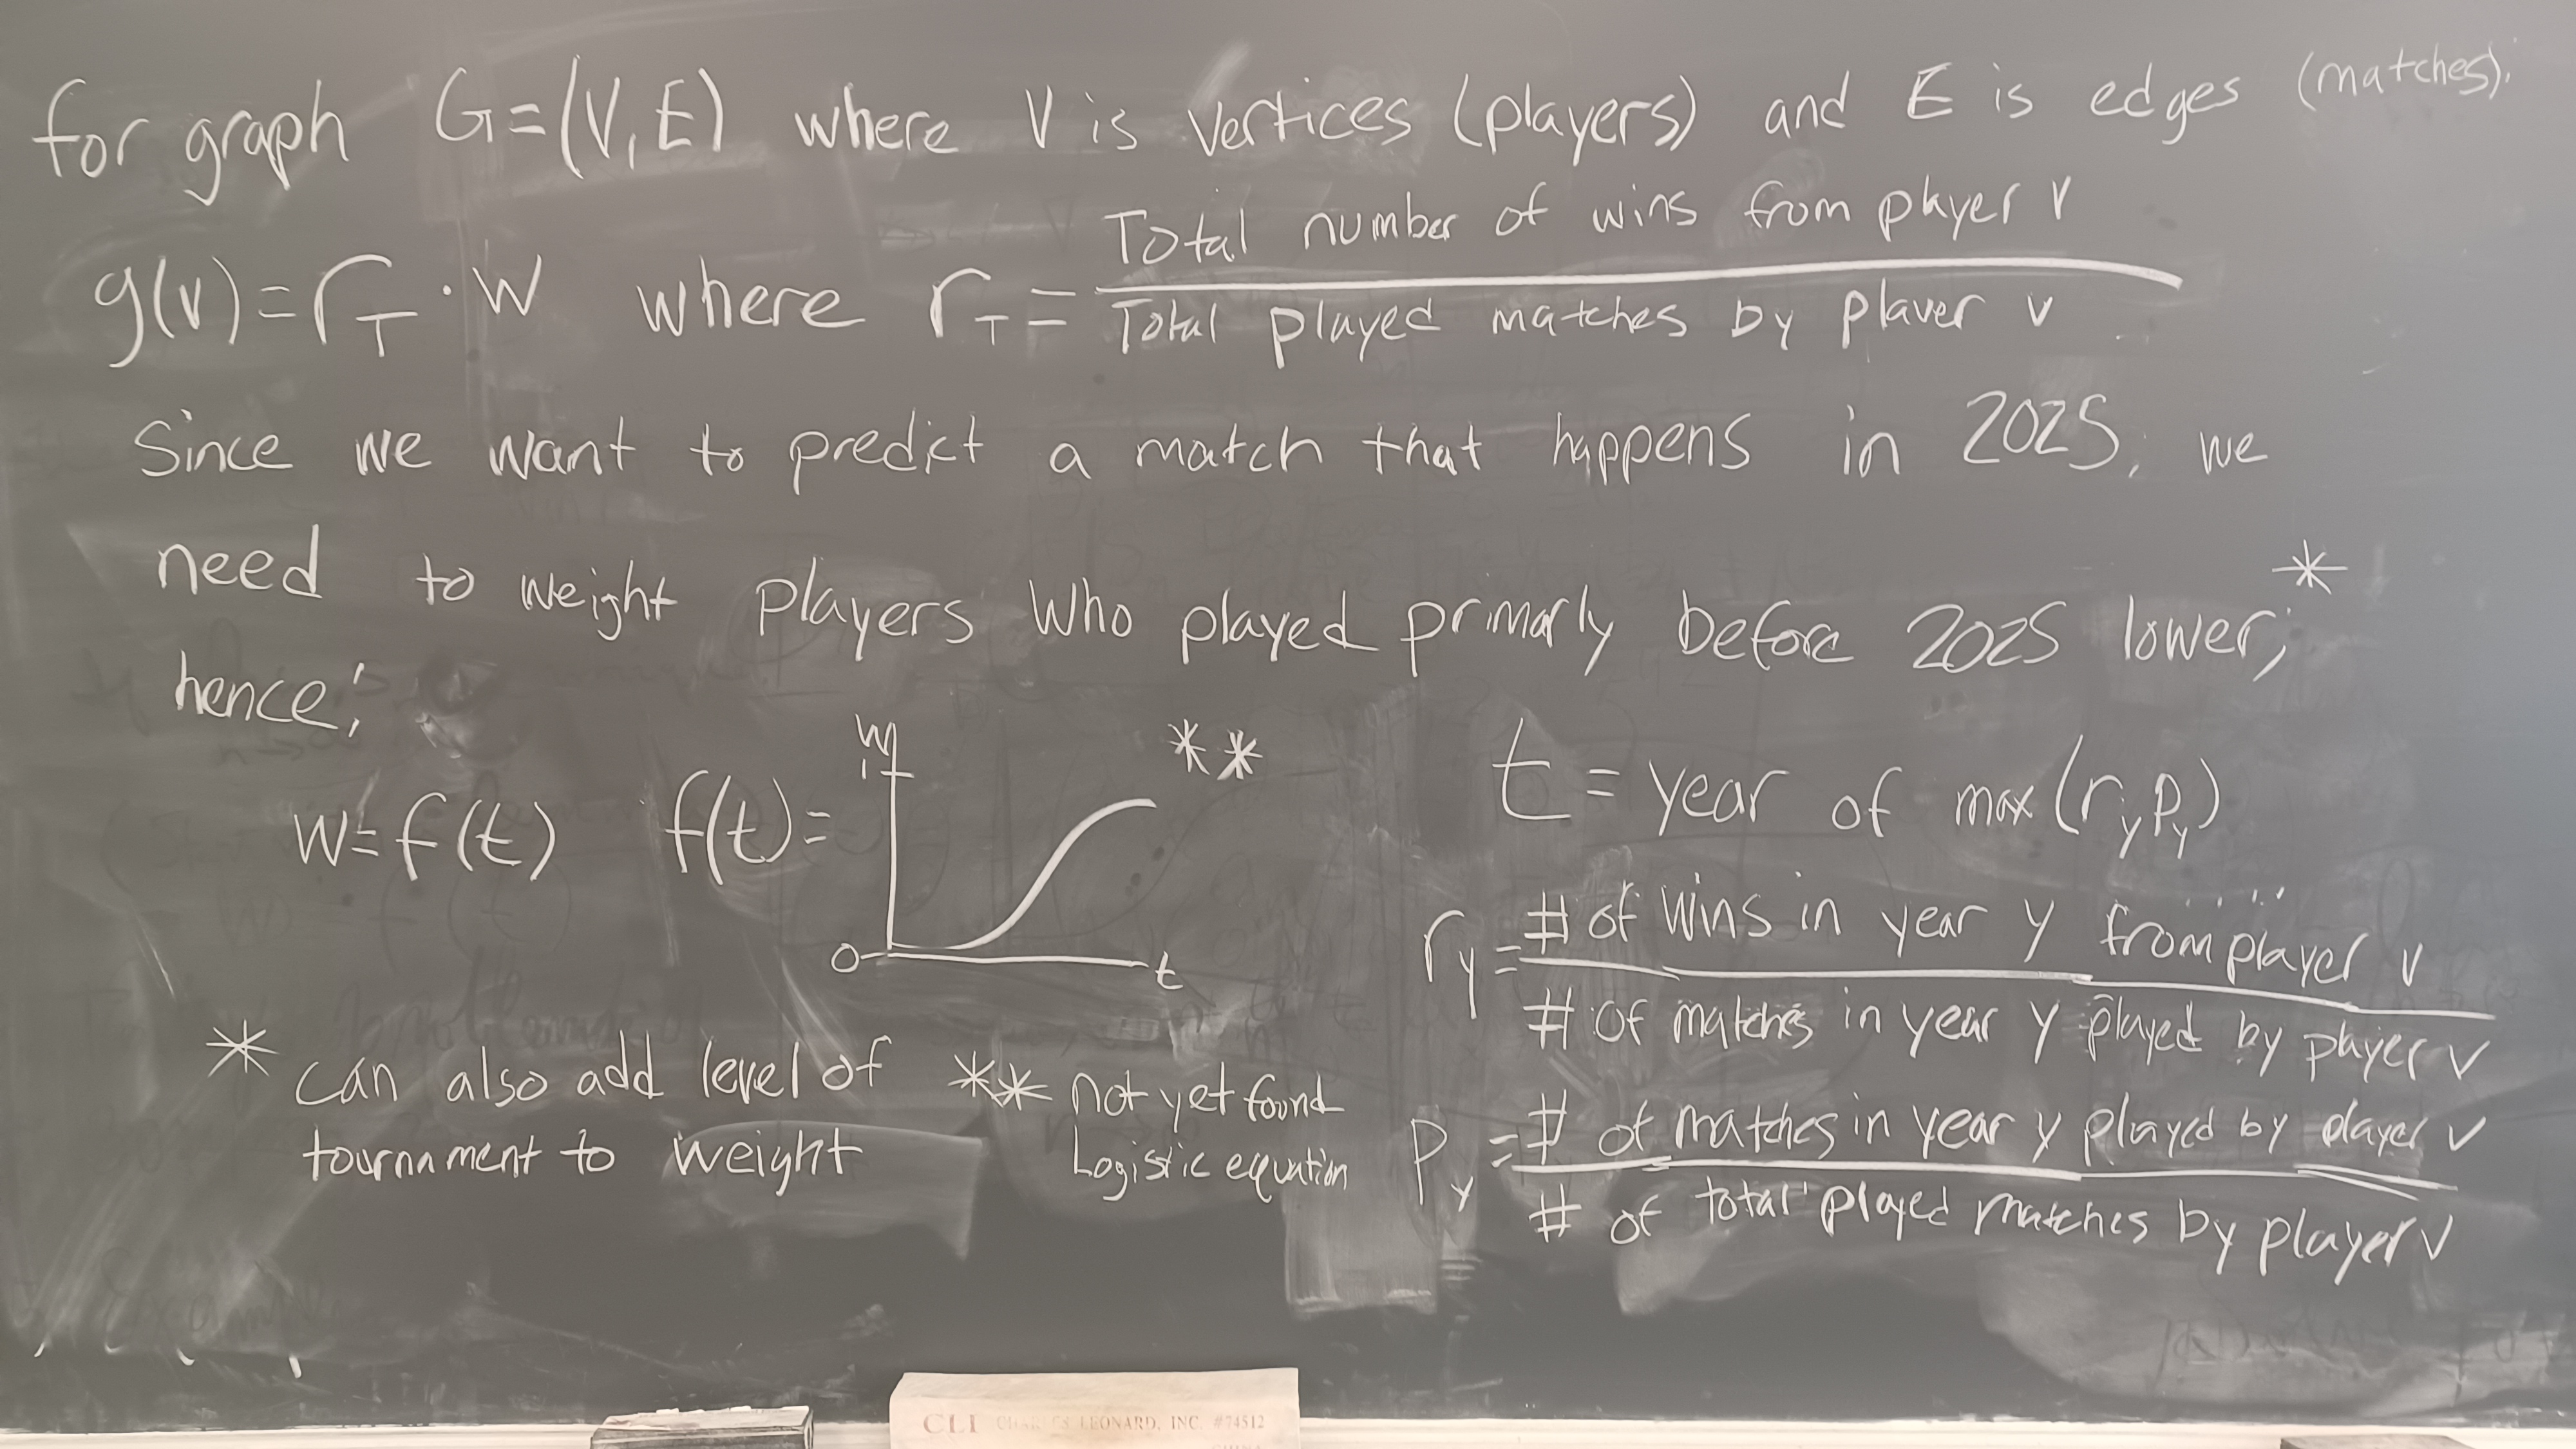 for graph G=(V,E) where V is vertices (players) and E is edges (matches).
g(v)=r_T · W where r_T = Total number of wins from player v
Total played matches by player v
Since we want to predict a match that happens in 2025, we
need to weight players who played primarly before 2025 lower;*
hence:
W=f(t) f(t)= W 1 0 t **
t = year of max(r_y p_y)
r_y = # of wins in year y from player v
# of matches in year y played by player v
p_y = # of matches in year y played by player v
# of total played matches by player v
* can also add level of
tournament to weight
** not yet found
Logistic equation
CLI LEONARD, INC. #74512